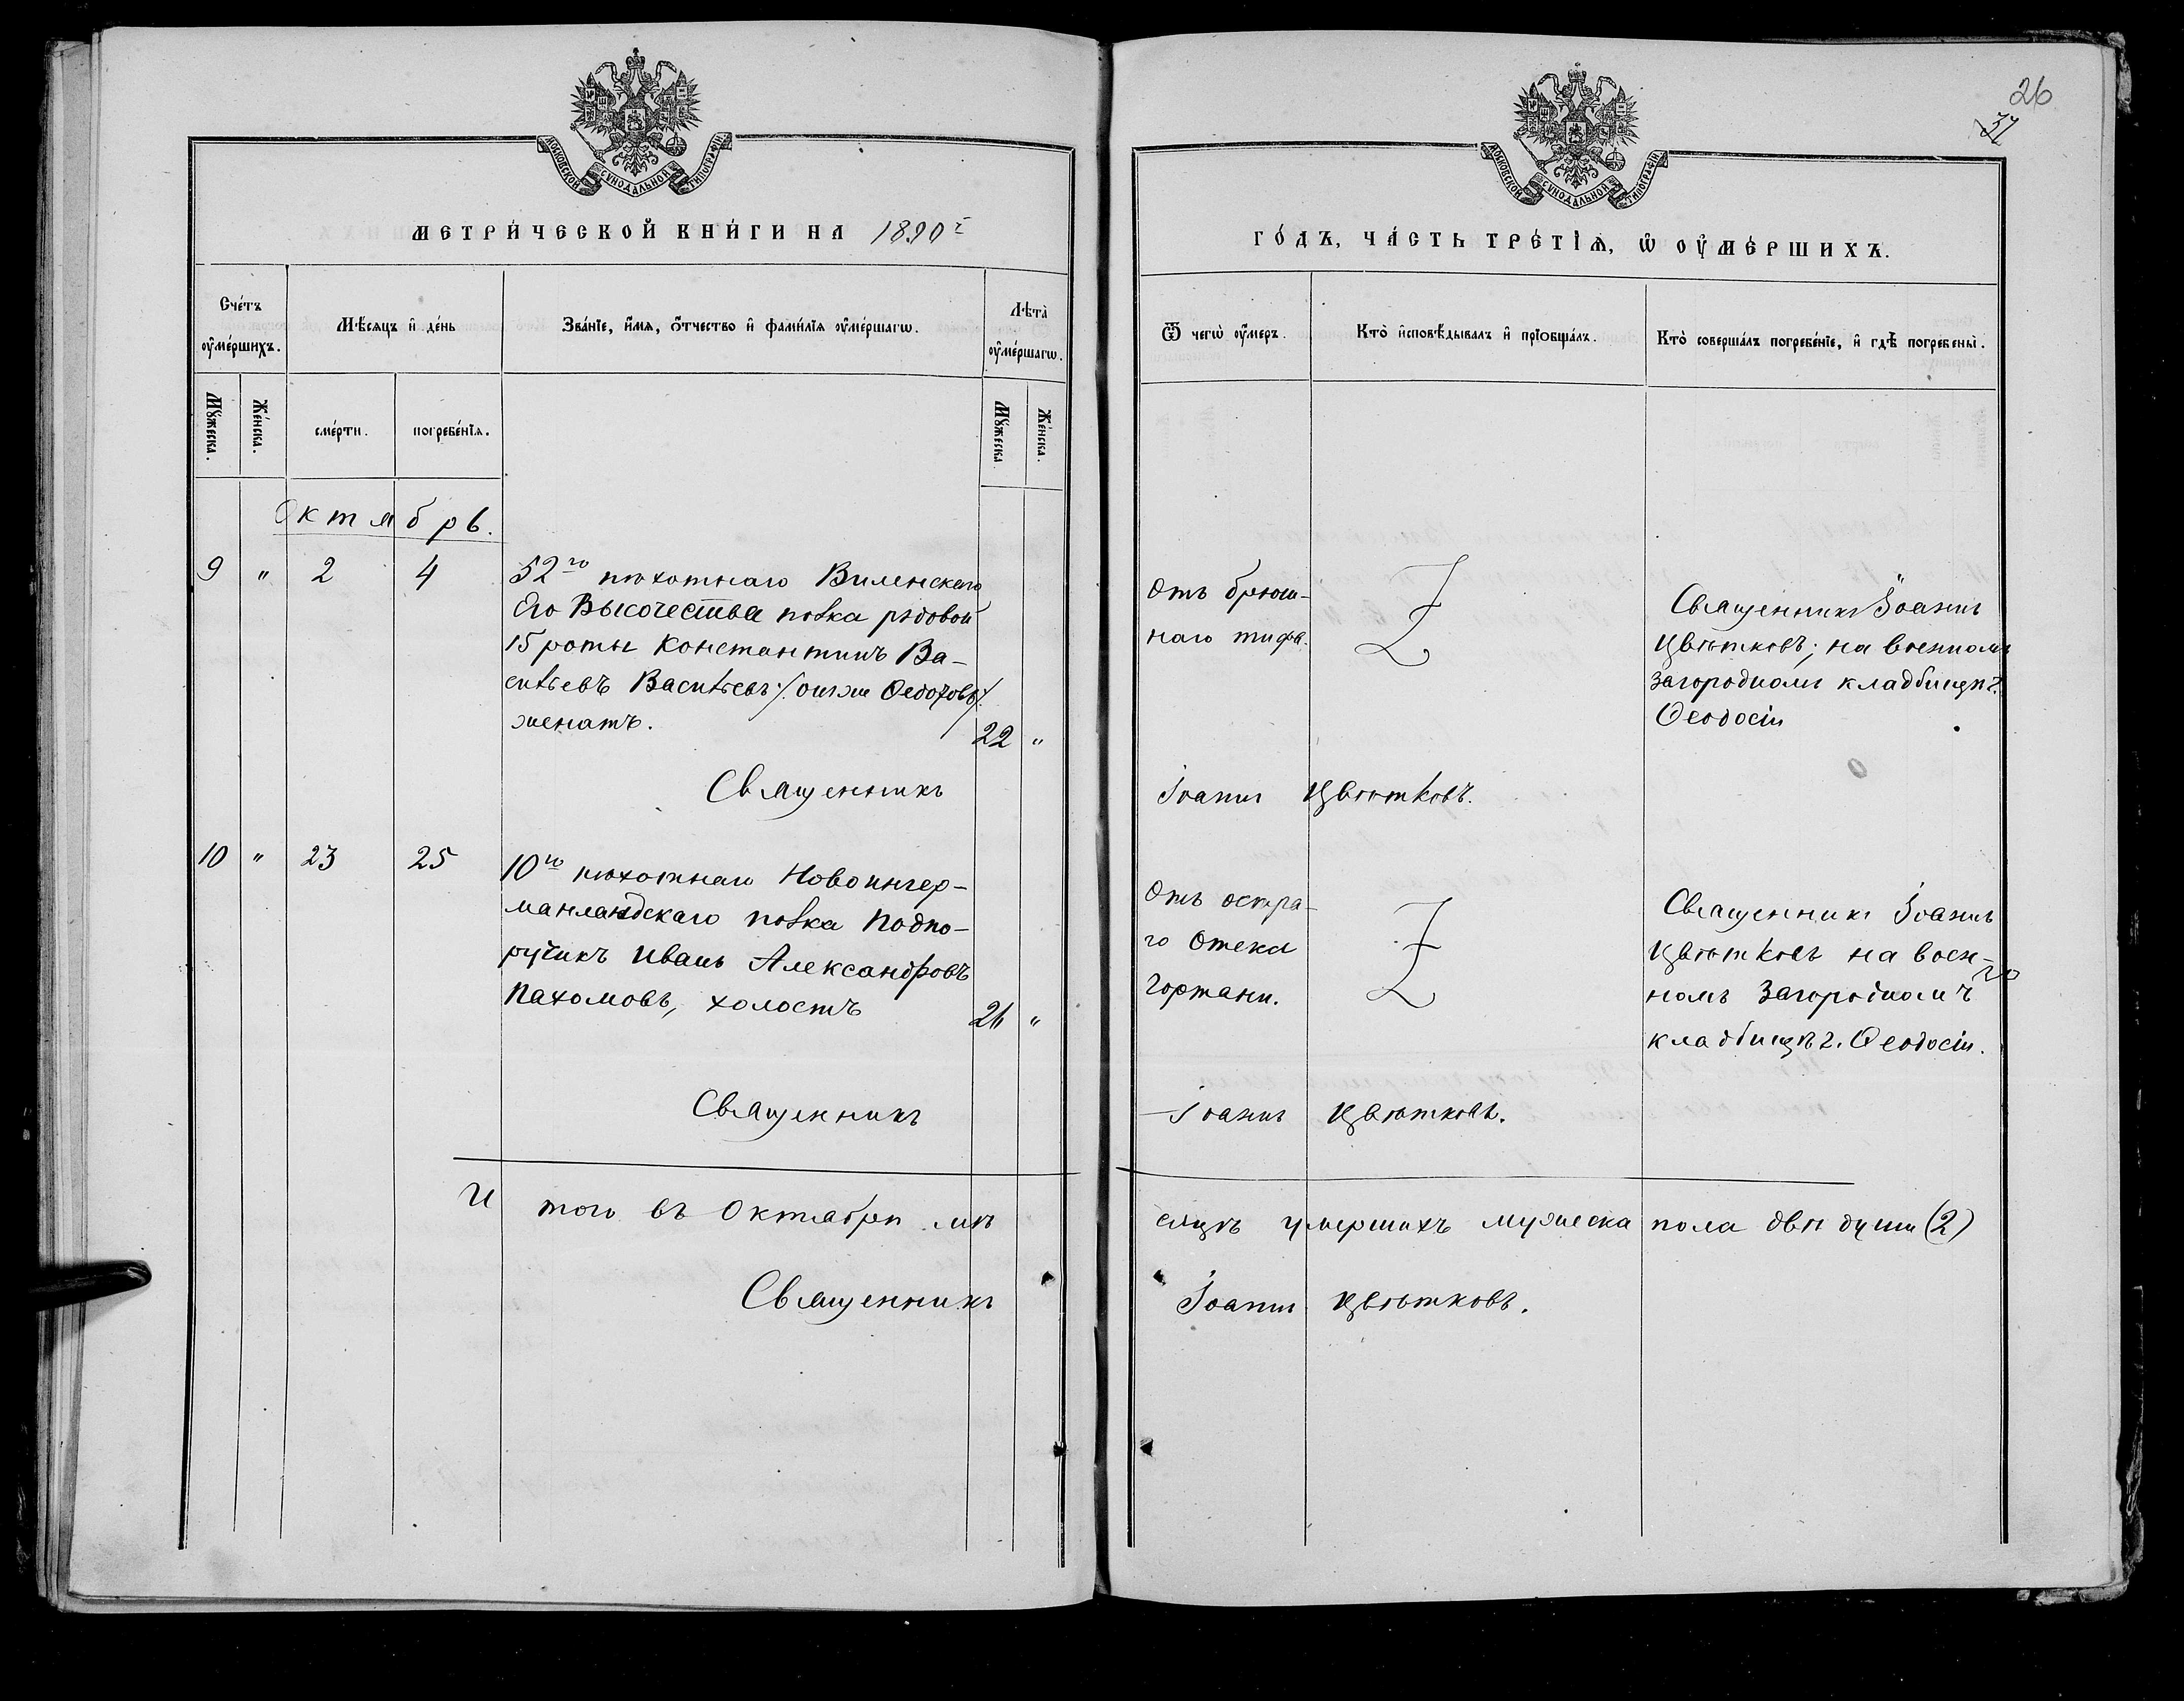 26
37
МОСКОВСКОЙ СѴНОДАЛЬНОЙ ТИПОГРАФІИ
МОСКОВСКОЙ СѴНОДАЛЬНОЙ ТИПОГРАФІИ
МЕТРИ́ЧЕСКОЙ КНИ́ГИ НА 1890й
ГО́ДЪ, ЧА́СТЬ ТРЕ́ТІѦ, Ѡ ОУ҆МЕ́РШИХЪ.
Сче́тъ оу҆ме́ршихъ.
Мѣ́сяцъ и҆ де́нь
Зва́нїе, и҆́мя, ѻ҆́тчество и҆ фами́лїя оу҆ме́ршагѡ.
Лѣта̀ оу҆ме́ршагѡ.
Ѿ чегѡ̀ оу҆́меръ.
Кто̀ и҆сповѣ́дывалъ и҆ прїобща́лъ.
Кто̀ соверша́лъ погребе́нїе, и҆ гдѣ̀ погребены̀.
Мꙋ́жеска.
Же́нска.
сме́рти.
погребе́нїя.
Мꙋ́жеска.
Же́нска.
Октябрь.
9 " 2 4
52го пѣхотнаго Виленскаго
Его Высочества полка рядовой
15 роты Константинъ Ва-
сильевъ Васильевъ /онъ же Федотовъ/
женатъ.
22 "
Отъ брюш-
наго тифа.
Священникъ Іоаннъ
Цвѣтковъ; на военномъ
загородномъ кладбищѣ г.
Ѳеодосіи
Священникъ Іоаннъ Цвѣтковъ.
10 " 23 25
10го пѣхотнаго Новоингер-
манландскаго полка Подпо-
ручикъ Иванъ Александровъ
Пахомовъ, холостъ
21 "
Отъ остра-
го отека
гортани.
Священникъ Іоаннъ
Цвѣтковъ на воен-
номъ Загородномъ
кладбищѣ г. Ѳеодосіи.
Священникъ Іоаннъ Цвѣтковъ.
Итого въ Октябрѣ мѣсяцѣ умершихъ мужеска пола двѣ души (2)
Священникъ Іоаннъ Цвѣтковъ.